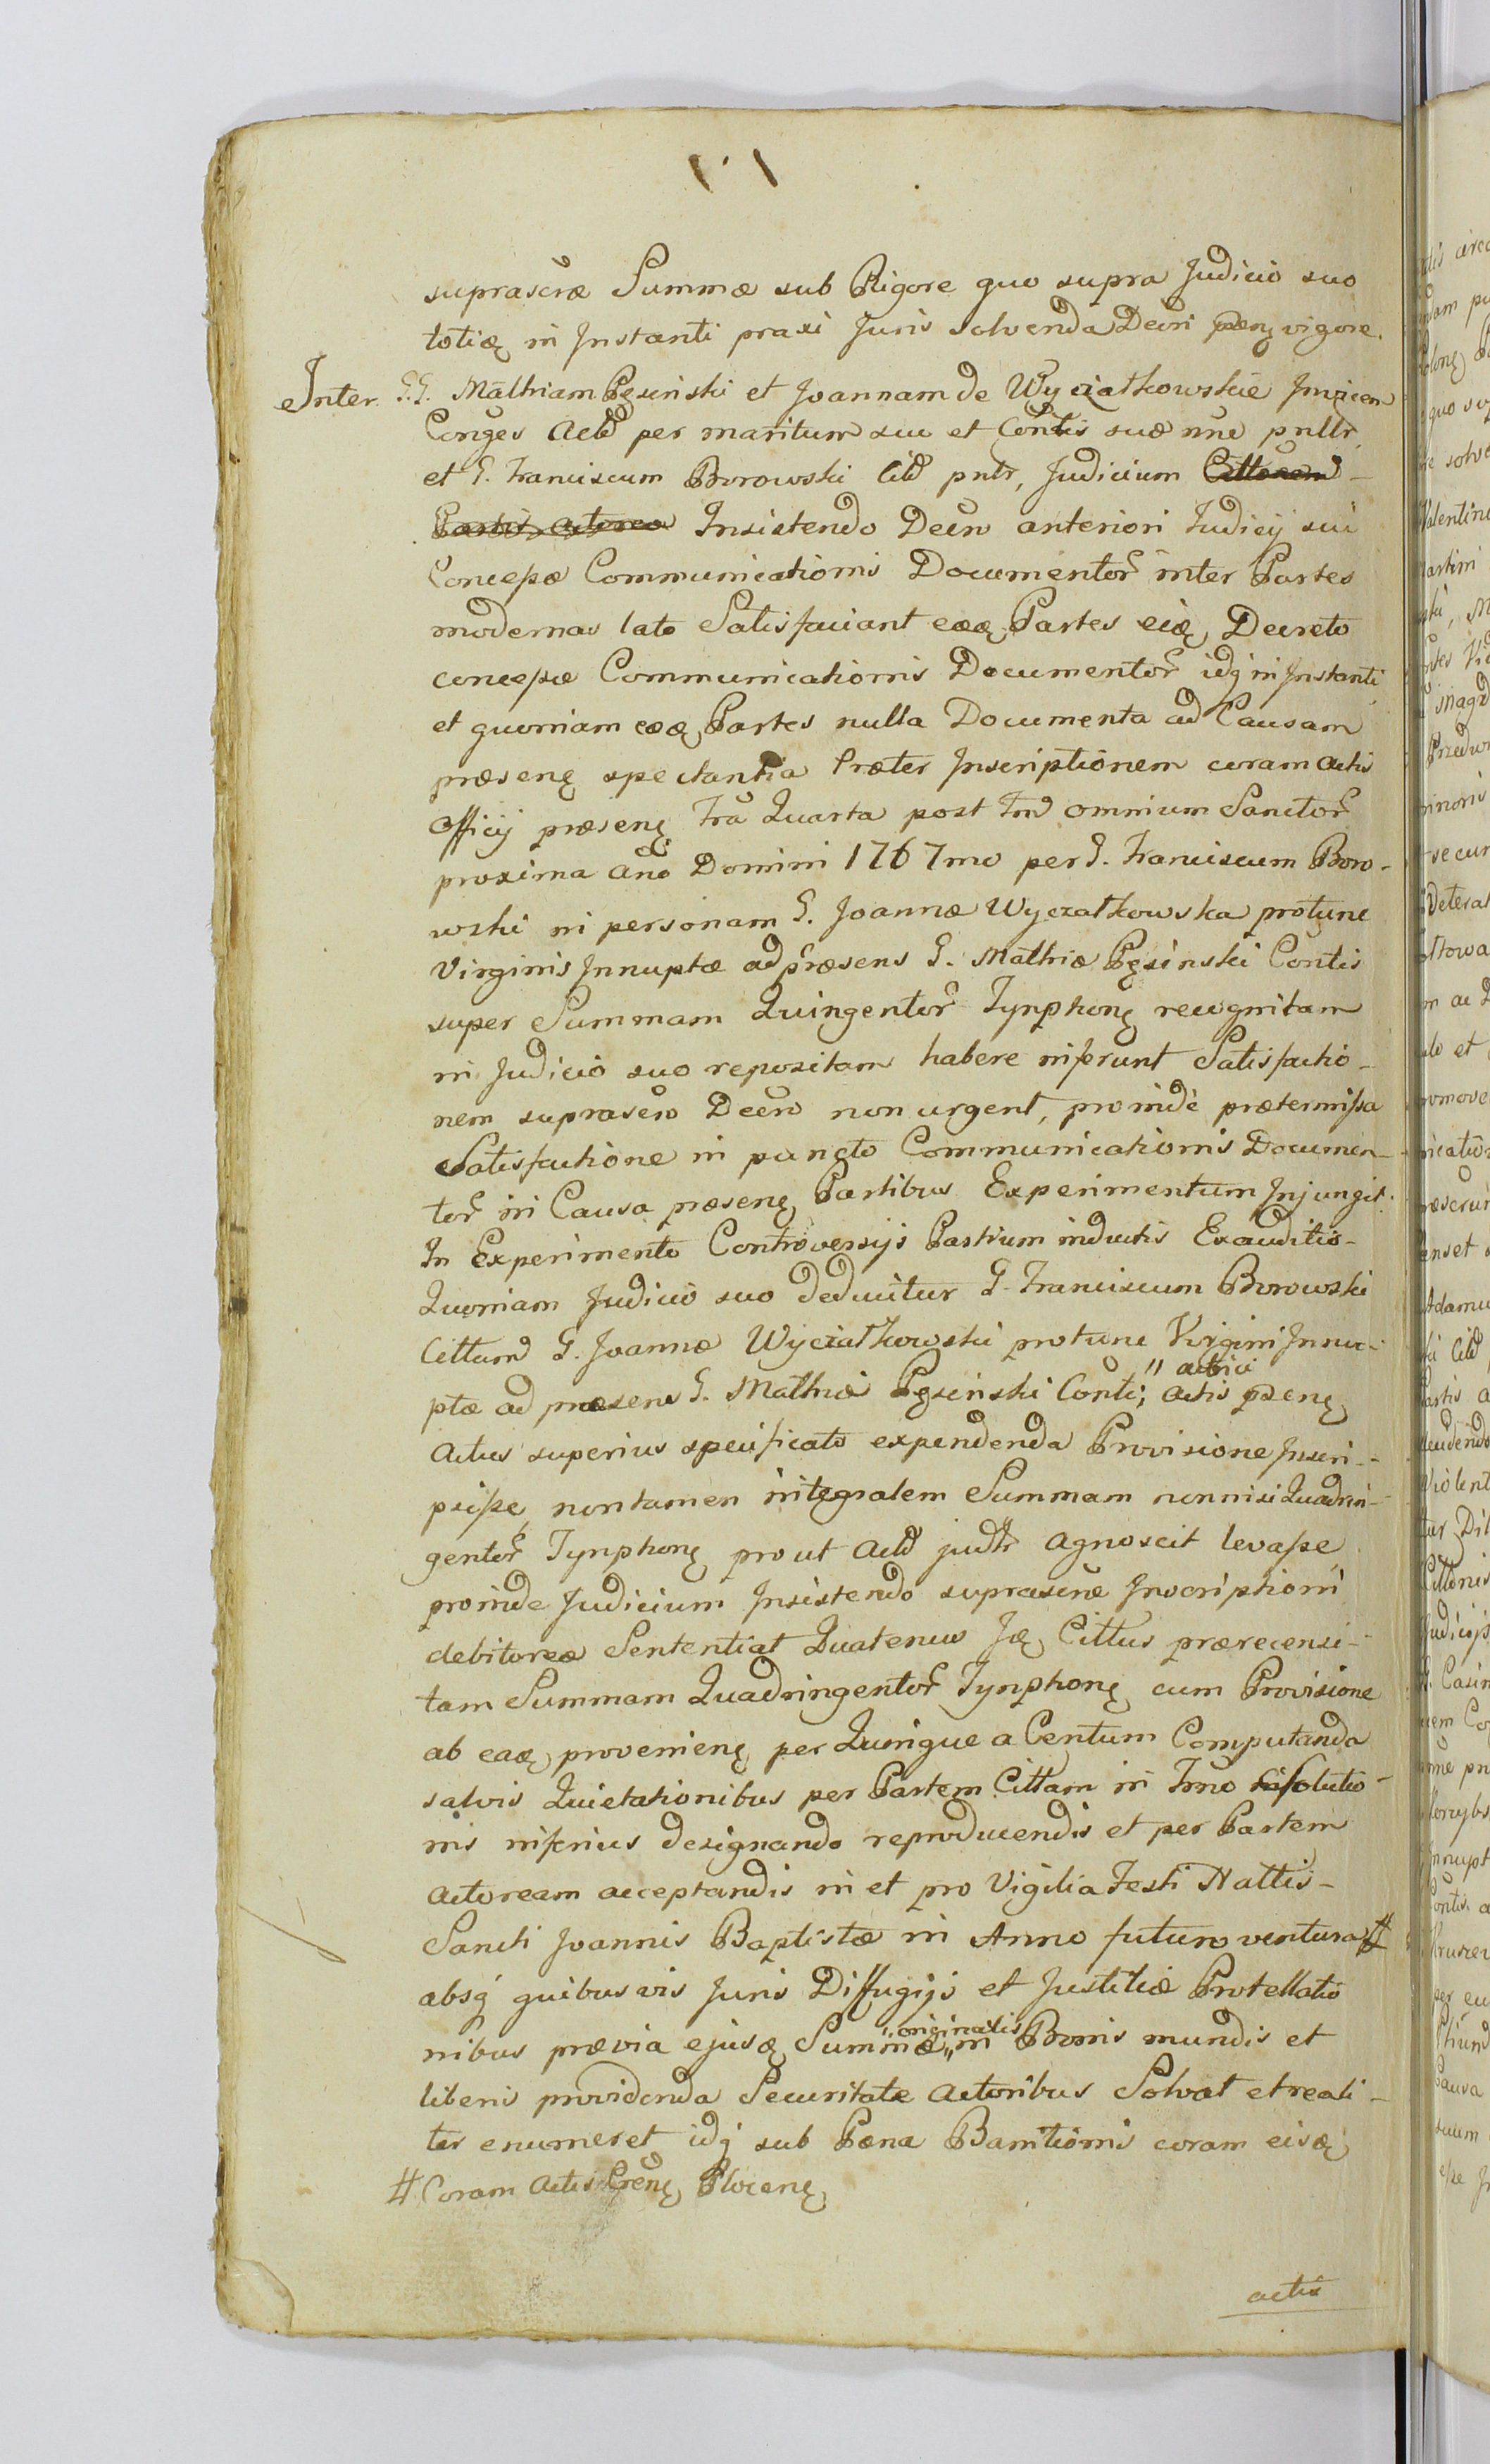 suprascræ Summæ sub Rigore quo supra Judicio suo
totię in Instanti praxi Juris solvenda Decri pręnę vigore.
Inter GG. Mathiam Pęsinski et Joannam de Wyczatkowskie Invicem
Conges Actt per maritum sui et Contis suæ nne pnllr
et G. Franciscum Borowski Citt pntr, Judicium Cittorem
Partis actorea Insistendo Decro anteriori Judicij sui
Concepæ Communicationis Documentor inter Partes
modernas lato Satisfaciant eæę Partes eię Decreto
concepæ Communicationis Documentor idq in Instanti
et quoniam eæę Partes nulla Documenta ad Causam
præsenę spectantia Præter Inscriptionem coram Actis
Officij præsenę Fra Quarta post Fm omnium Sanctor
proxima Ano Domini 1767mo per G. Franciscum Boro-
wski in personam G. Joannæ Wyczatkowska protunc
Virginis Innuptæ ad præsens G. Mathiæ Pęsinski Contis
super Summam Quingentor Tynphonę recognitam
in Judicio suo repositam habere inferunt Satisfactio-
nem suprascro Decro non urgent, proinde prætermissa
Satisfactione in puncto Communicationis Documen-
tor in Causa præsenę Partibus Experimentum Injungit.
In Experimento Controversijs Partium inductis Exauditis-
Quoniam Judicio suo deducitur G. Franciscum Borowski
Cittum G. Joannæ Wyczatkowski protunc Virgini Innu-
ptæ ad præsens G. Mathiæ Pęsinski Conti, " actrici
Actis præsenę
Actus superius specificato expendenda Provisione Inscri-
psisse, non tamen integralem Summam nonnisi Quadrin-
gentor Tynphonę prout Actt judtr agnoscit levasse
proinde Judicium Insistendo suprascræ Inscriptioni
debitoreæ Sententiat Quatenus Ię Cittus prærecensi-
tam Summam Quadringentor Tynphonę cum Provisione
ab eaę provenienę per Quinque a Centum Computanda
salvis Quietationibus per Partem Cittam in Tmno Exsolutio-
nis inferius designando reproducendis et per Partem
Actoream acceptandis in et pro Vigilia Festi Nattis-
Sancti Joannis Baptistæ in Anno futuro ventura #
absq quibusvis Juris Diffugijs et Justitiæ Protellatio
nibus prævia ejusę Summæ " originalis " in Bonis mundis et
liberis providenda Securitate Actoribus Solvat et reali-
ter enumeret idq sub Pæna Banitionis coram eisę
# Coram Actis Prenę Plocenę
actis